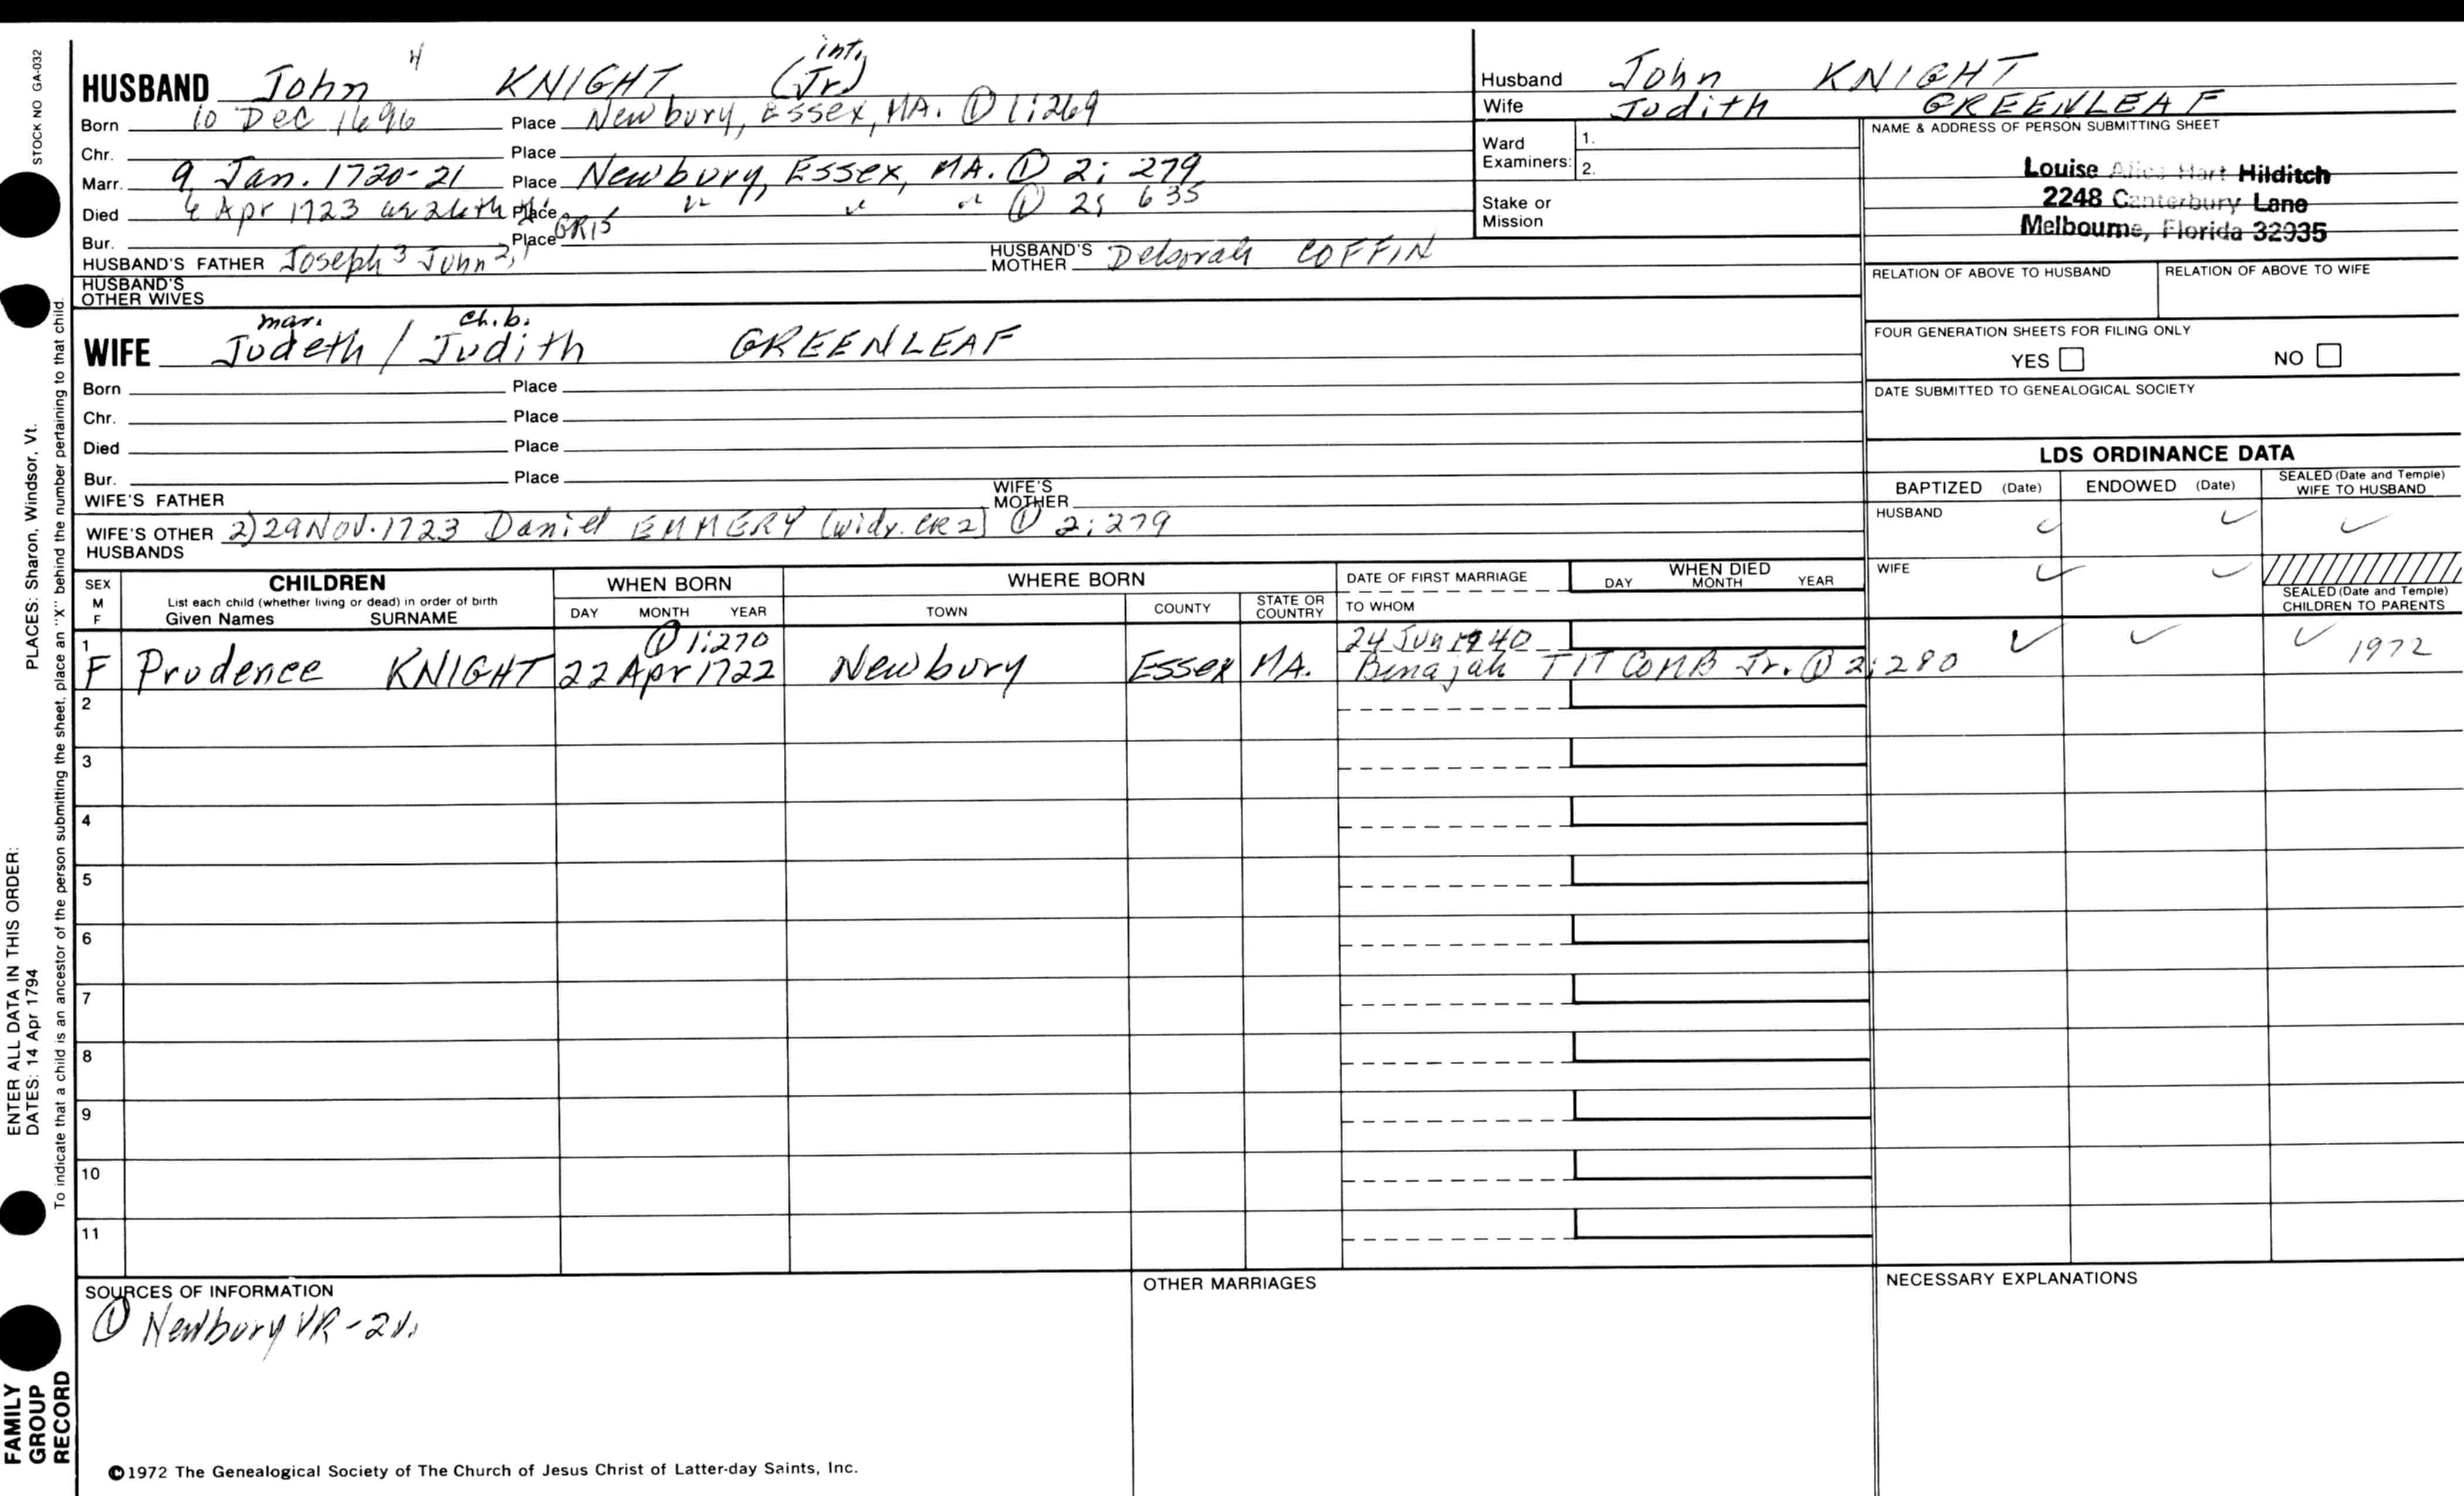 STOCK NO GA-032
HUSBAND John 4 KNIGHT (Jr) int.
Born 10 Dec 1696 Place Newbury, Essex, MA. ① 1:269
Chr. Place
Marr. 9 Jan. 1720-21 Place Newbury, Essex, MA. ① 2: 279
Died Apr 1723 Place " " " ① 2: 635
Bur. Place GR15
HUSBAND'S FATHER Joseph 3 John 2, 1 HUSBAND'S MOTHER Deborah COFFIN
HUSBAND'S OTHER WIVES
mar. ch.b.
WIFE Judeth / Judith GREENLEAF
Born Place
Chr. Place
Died Place
Bur. Place
WIFE'S FATHER WIFE'S MOTHER
WIFE'S OTHER HUSBANDS 2) 29 Nov. 1723 Daniel EMMERY (widr. CR2) ① 2:279
Husband John KNIGHT
Wife Judith GREENLEAF
Ward Examiners: 1.
2.
Stake or Mission
NAME & ADDRESS OF PERSON SUBMITTING SHEET
Louise Alice Hart Hilditch
2248 Canterbury Lane
Melbourne, Florida 32935
RELATION OF ABOVE TO HUSBAND RELATION OF ABOVE TO WIFE
FOUR GENERATION SHEETS FOR FILING ONLY
YES NO
DATE SUBMITTED TO GENEALOGICAL SOCIETY
LDS ORDINANCE DATA
BAPTIZED (Date) ENDOWED (Date) SEALED (Date and Temple) WIFE TO HUSBAND
HUSBAND ✓ ✓ ✓
WIFE ✓ ✓
SEALED (Date and Temple) CHILDREN TO PARENTS
SEX M F CHILDREN WHEN BORN WHERE BORN DATE OF FIRST MARRIAGE WHEN DIED
List each child (whether living or dead) in order of birth
Given Names SURNAME DAY MONTH YEAR TOWN COUNTY STATE OR COUNTRY TO WHOM DAY MONTH YEAR
① 1:270 24 Jun 1740
1 F Prudence KNIGHT 22 Apr 1722 Newbury Essex MA. Benajah TITCOMB Jr. ① 2:280 ✓ ✓ ✓ 1972
2
3
4
5
6
7
8
9
10
11
SOURCES OF INFORMATION
① Newbury VR - 2v.
OTHER MARRIAGES
NECESSARY EXPLANATIONS
©1972 The Genealogical Society of The Church of Jesus Christ of Latter-day Saints, Inc.
ENTER ALL DATA IN THIS ORDER:
DATES: 14 Apr 1794 PLACES: Sharon, Windsor, Vt.
To indicate that a child is an ancestor of the person submitting the sheet, place an "X" behind the number pertaining to that child.
FAMILY
GROUP
RECORD